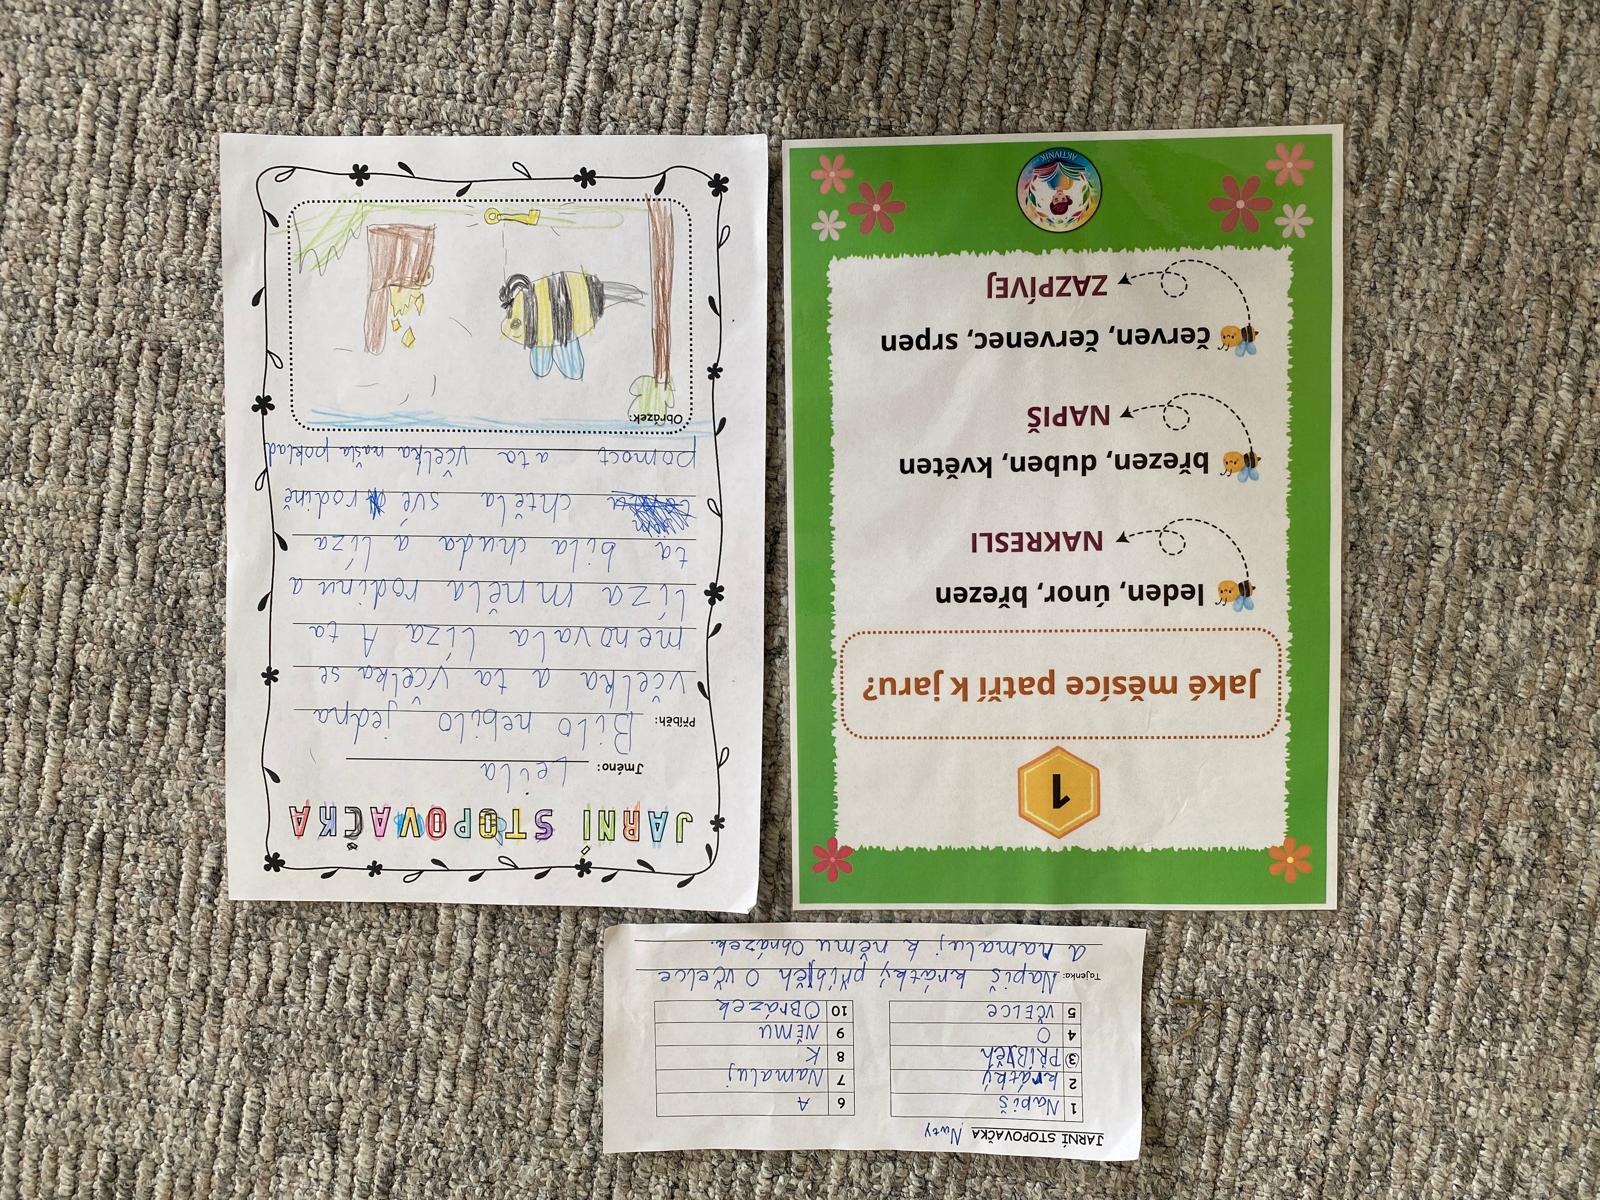 JARNÍ STOPOVAČKA Nuty
1 Napiš
2 krátký
3 PŘÍBĚh
4 O
5 VČELCE
6 A
7 Namaluj
8 K
9 NĚMU
10 OBRÁZEK
Tajenka: Napiš krátký příběh O včelce
a namaluj k němu Obrázek.
1
Jaké měsíce patří k jaru?
leden, únor, březen
NAKRESLI
březen, duben, květen
NAPIŠ
červen, červenec, srpen
ZAZPÍVEJ
AKTIVNÍK
JARNÍ STOPOVAČKA
Jméno: Leila
Příběh: Bilo nebilo jedna
včelka a ta včelka se
menovala líza. A ta
líza mněla rodinu a
ta bila chuda a líza
chtěla své rodině
pomoct a ta včelka našla poklad
Obrázek: